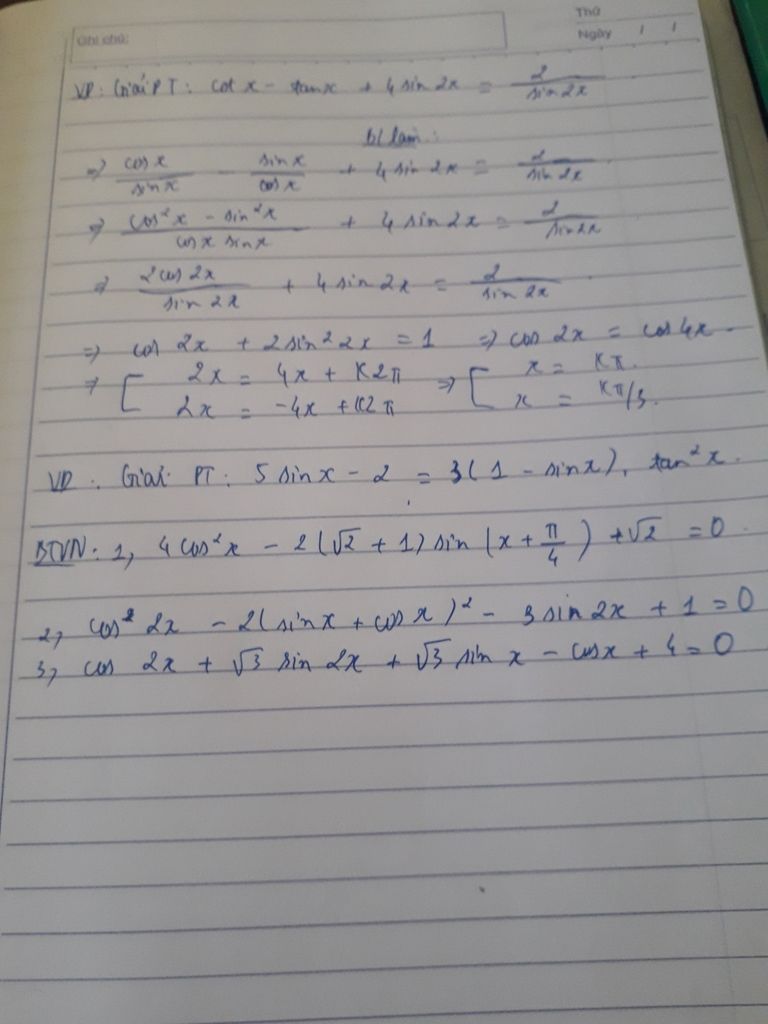 Ghi chú:
Thứ
Ngày / /
VD: Giải PT: cot x - tanx + 4 sin 2x = 2/sin 2x
Bl làm:
=> cosx/sinx - sinx/cosx + 4 sin 2x = 2/sin 2x
=> (cos²x - sin²x)/(cosx sinx) + 4 sin 2x = 2/sin2x
=> 2cos 2x/sin 2x + 4 sin 2x = 2/sin 2x
=> cos 2x + 2sin² 2x = 1 => cos 2x = cos 4x.
=> [ 2x = 4x + K2π => [ x = Kπ.
2x = -4x + K2π x = Kπ/3.
VD: Giải PT: 5 sin x - 2 = 3(1 - sinx). tan²x.
BTVN: 1, 4cos²x - 2(√2 + 1) sin (x + π/4) + √2 = 0.
2, cos² 2x - 2(sinx + cosx)² - 3 sin 2x + 1 = 0
3, cos 2x + √3 sin 2x + √3 sin x - cosx + 4 = 0